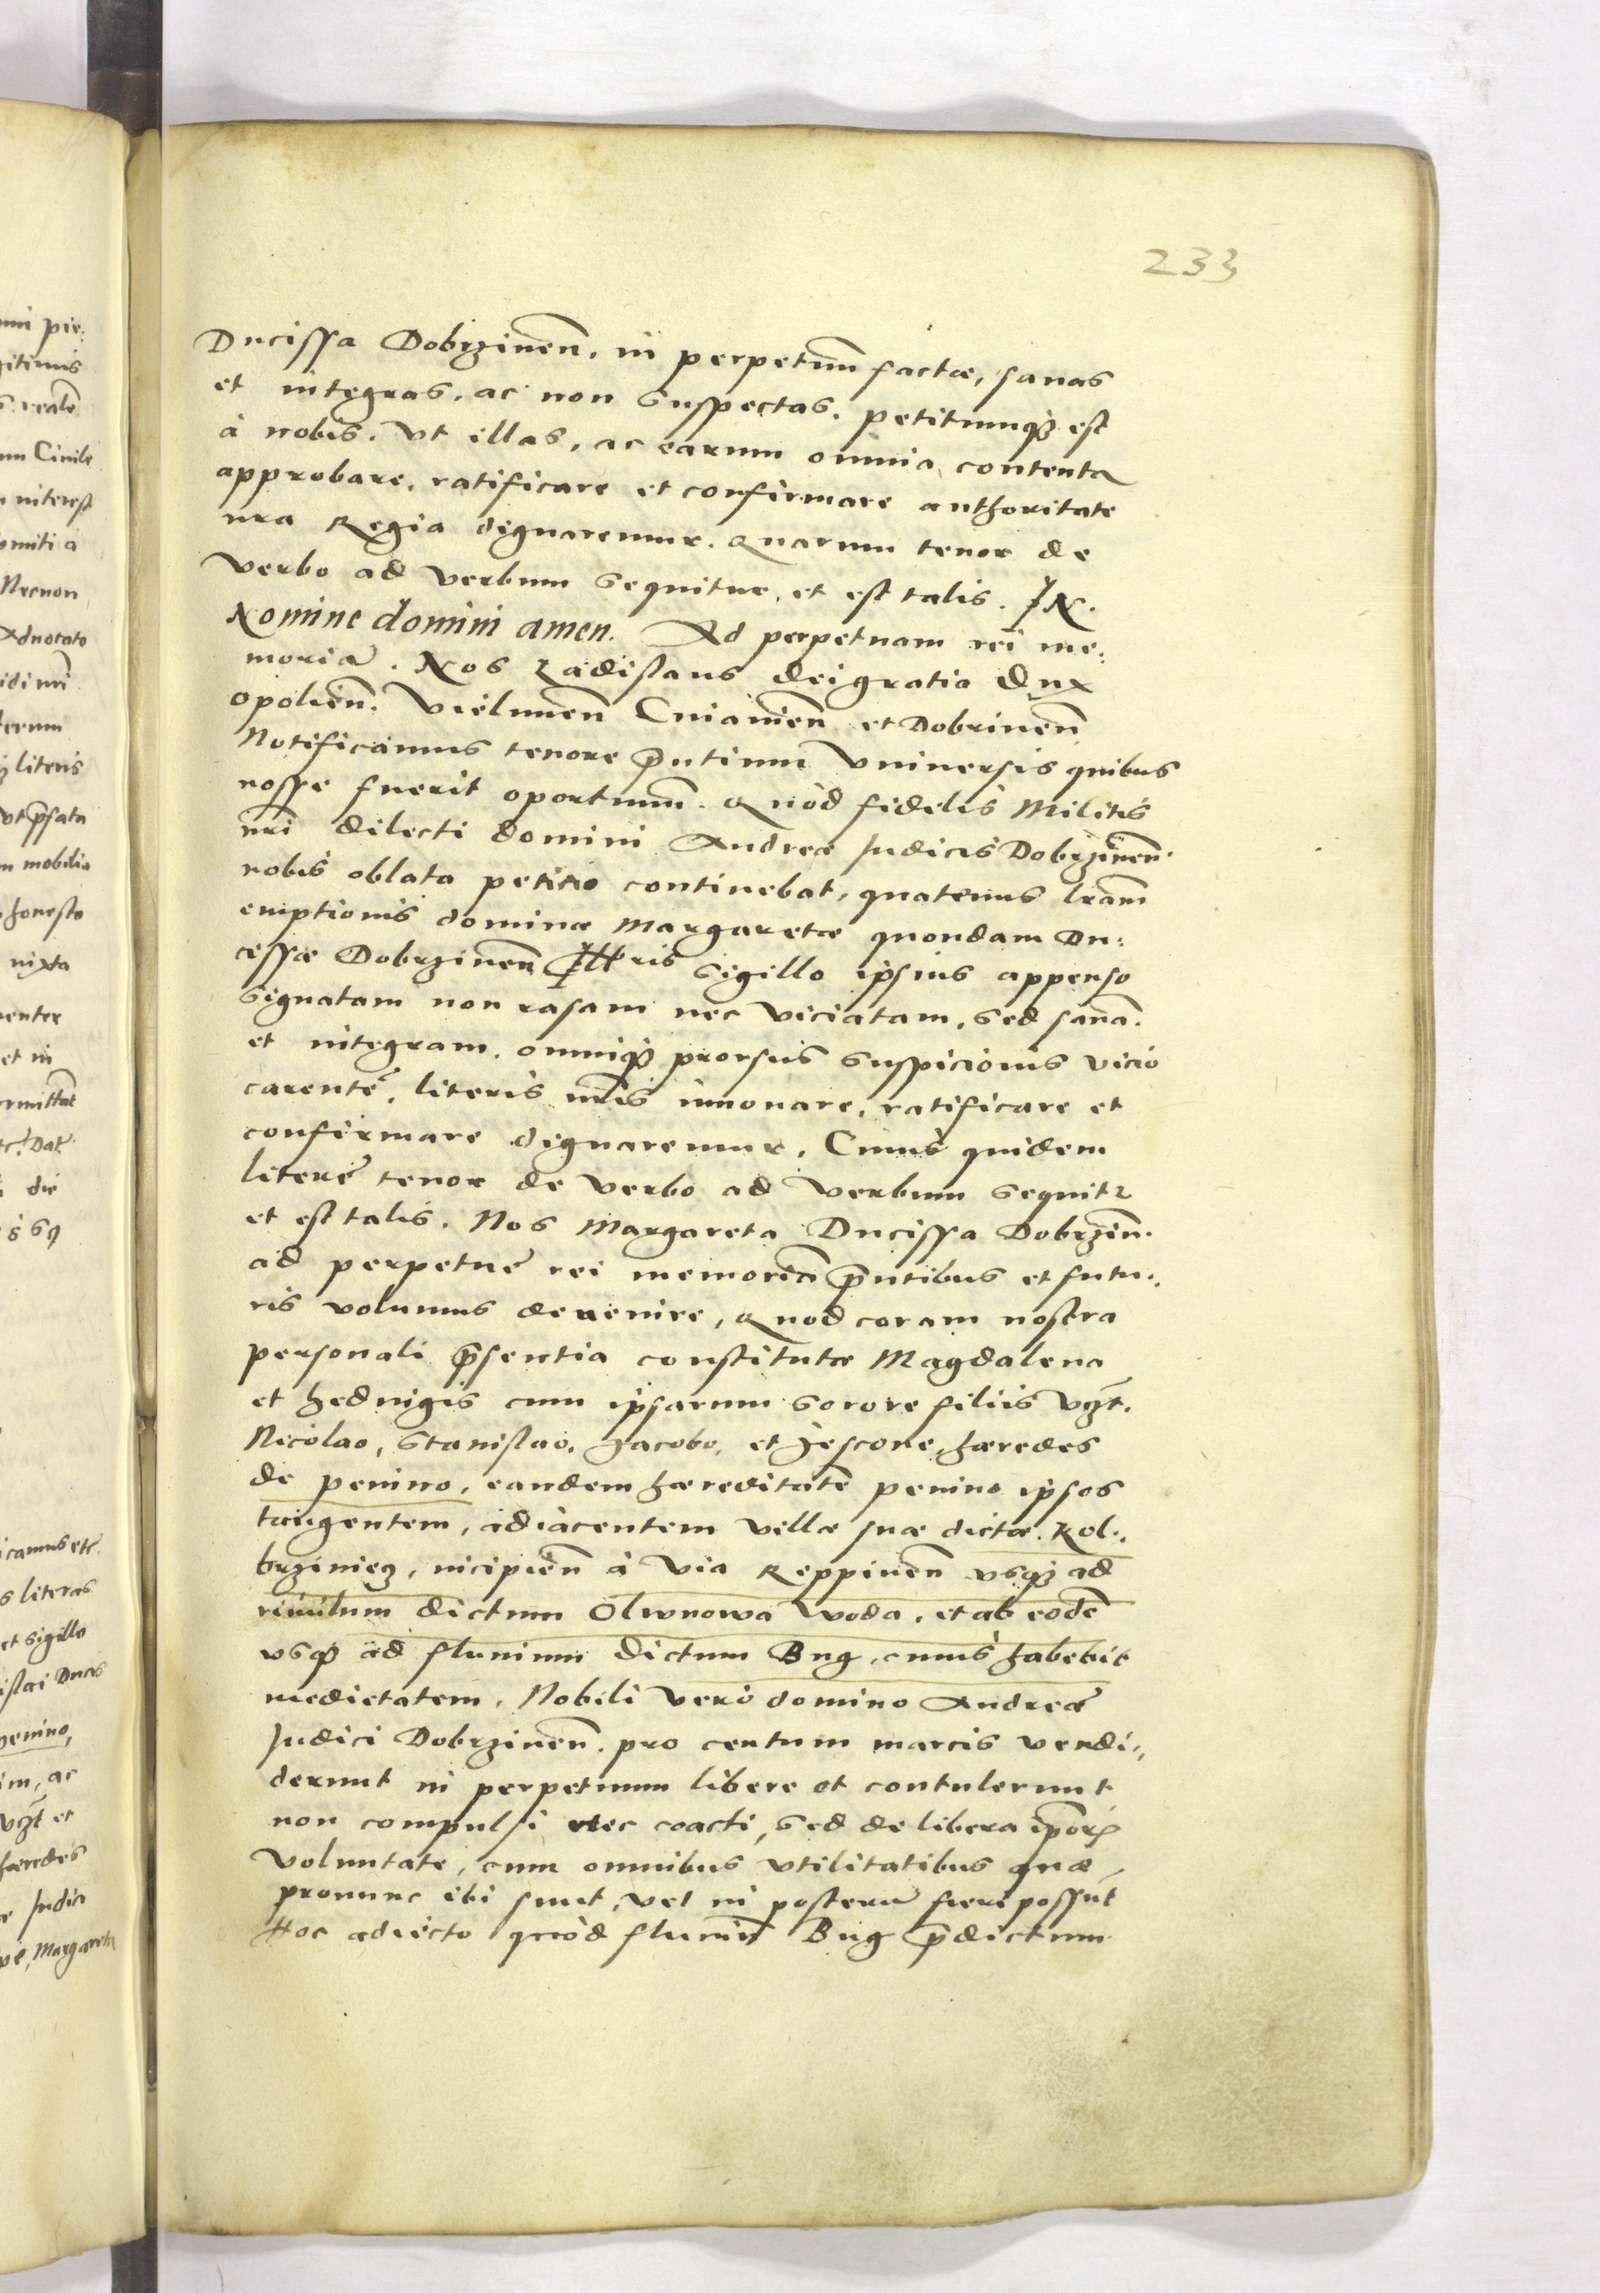 233
Ducissa Dobrzinen̄. in perpetuum factæ, sanas
et integras, ac non suspectas. petitumqȝ est
à nobis. Vt illas, ac earum omnia contenta
approbare, ratificare et confirmare authoritate
nr̄a Regia dignaremur. Quarum tenor de
verbo ad verbum sequitur, et est talis. IN.
Nomine domini amen. Ad perpetuam rei me:
moriā. Nos Ladislaus dei gratia Dux
opolien̄. Vielunen̄ Cuiauien̄ et Dobrinen̄
Notificamus tenore pn̄tium Vniuersis quibus
nosse fuerit oportunum. Quòd fidelis Militis
nr̄i dilecti domini Andreæ Judicis Dobrzinen̄.
nobis oblata petitio continebat, quatenus lr̄am
emptionis dominæ Margaretæ quondam Du:
cissæ Dobrzinen̄ sigillo ipsius appenso
signatam non rasam nec viciatam, sed sanā.
et integram. omniqȝ prorsus suspicionis vicio
carentē, literis nr̄is innouare, ratificare et
confirmare dignaremur. Cuius quidem
literę tenor de verbo ad verbum sequitr
et est talis. Nos Margareta Ducissa Dobrzin̄.
ad perpetuę rei memoriā pn̄tibus et futu:
ris volumus deuenire, Quod coram nostra
personali p̄sentia constitutæ Magdalena
et Heduigis cum ipsarum sorore filiis vz̄t.
Nicolao, Stanislao, Jacobo, et Jescone, hæredes
de penino, eandem hæreditatē penino ipsos
tangentem, adiacentem villæ suæ dictæ. Kol:
brziniecz, incipien̄ à via Reppinen̄ vsqȝ ad
riuulum dictum Olwnowa woda, et ab eodē
vsqȝ ad fluuium dictum Bug, cuius habebit
medietatem, Nobili verò domino Andreæ
Judici Dobrzinen̄. pro centum marcis vendi:
derunt in perpetuum libere et contulerunt
non compulsi nec coacti, sed de libera ip̄orum
voluntate, cum omnibus vtilitatibus quæ
pronunc ibi sunt, vel in posterū fieri possūt
Hoc adiecto quòd fluuiū Bug p̄dictum